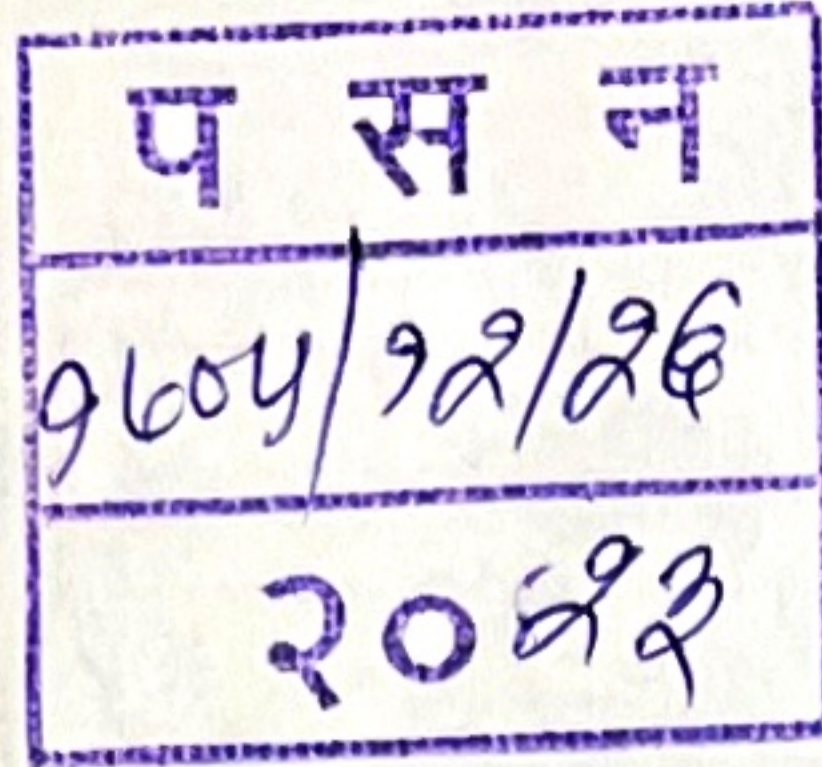 प स न
१७०५/१२/२६
२०२३